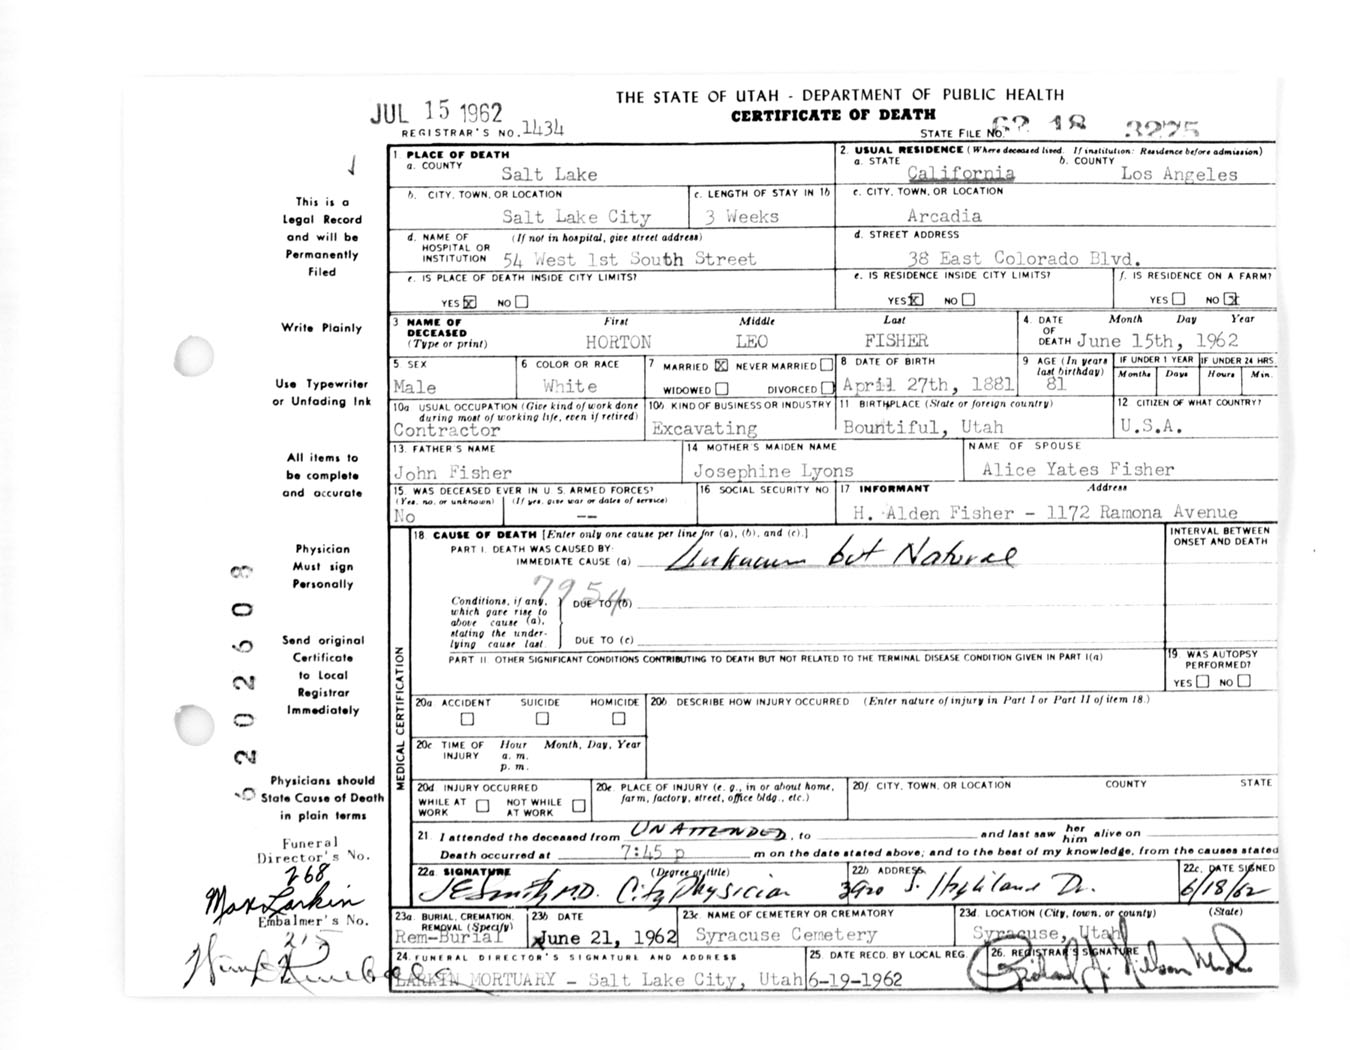 THE STATE OF UTAH - DEPARTMENT OF PUBLIC HEALTH
JUL 15 1962
CERTIFICATE OF DEATH
REGISTRAR'S NO. 1434
STATE FILE NO. 62 18 3275
This is a
Legal Record
and will be
Permanently
Filed
Write Plainly
Use Typewriter
or Unfading Ink
All items to
be complete
and accurate
Physician
Must sign
Personally
Send original
Certificate
to Local
Registrar
Immediately
Physicians should
State Cause of Death
in plain terms
Funeral
Director's No.
268
Max Larkin
Embalmer's No.
215
1. PLACE OF DEATH
a. COUNTY
Salt Lake
2. USUAL RESIDENCE (Where deceased lived. If institution: Residence before admission)
a. STATE
California
b. COUNTY
Los Angeles
b. CITY, TOWN, OR LOCATION
Salt Lake City
c. LENGTH OF STAY IN 1b
3 Weeks
c. CITY, TOWN, OR LOCATION
Arcadia
d. NAME OF HOSPITAL OR INSTITUTION
(If not in hospital, give street address)
54 West 1st South Street
d. STREET ADDRESS
38 East Colorado Blvd.
e. IS PLACE OF DEATH INSIDE CITY LIMITS?
YES X NO
e. IS RESIDENCE INSIDE CITY LIMITS?
YES X NO
f. IS RESIDENCE ON A FARM?
YES NO X
3 NAME OF DECEASED (Type or print)
First Middle Last
HORTON LEO FISHER
4. DATE OF DEATH
Month Day Year
June 15th, 1962
5 SEX
Male
6 COLOR OR RACE
White
7 MARRIED X NEVER MARRIED
WIDOWED DIVORCED
8 DATE OF BIRTH
April 27th, 1881
9 AGE (In years last birthday)
81
IF UNDER 1 YEAR
Months Days
IF UNDER 24 HRS.
Hours Min.
10a USUAL OCCUPATION (Give kind of work done during most of working life, even if retired)
Contractor
10b KIND OF BUSINESS OR INDUSTRY
Excavating
11 BIRTHPLACE (State or foreign country)
Bountiful, Utah
12 CITIZEN OF WHAT COUNTRY?
U.S.A.
13. FATHER'S NAME
John Fisher
14 MOTHER'S MAIDEN NAME
Josephine Lyons
NAME OF SPOUSE
Alice Yates Fisher
15. WAS DECEASED EVER IN U. S. ARMED FORCES?
(Yes, no, or unknown) (If yes, give war or dates of service)
No --
16 SOCIAL SECURITY NO
17 INFORMANT Address
H. Alden Fisher - 1172 Ramona Avenue
MEDICAL CERTIFICATION
18 CAUSE OF DEATH [Enter only one cause per line for (a), (b), and (c).]
INTERVAL BETWEEN ONSET AND DEATH
PART I. DEATH WAS CAUSED BY:
IMMEDIATE CAUSE (a) Unknown but Natural
Conditions, if any, which gave rise to above cause (a), stating the underlying cause last.
DUE TO (b)
DUE TO (c)
PART II OTHER SIGNIFICANT CONDITIONS CONTRIBUTING TO DEATH BUT NOT RELATED TO THE TERMINAL DISEASE CONDITION GIVEN IN PART I(a)
19 WAS AUTOPSY PERFORMED?
YES NO
20a ACCIDENT SUICIDE HOMICIDE
20b DESCRIBE HOW INJURY OCCURRED (Enter nature of injury in Part I or Part II of item 18.)
20c TIME OF INJURY
Hour Month, Day, Year
a. m.
p. m.
20d INJURY OCCURRED
WHILE AT WORK NOT WHILE AT WORK
20e. PLACE OF INJURY (e. g., in or about home, farm, factory, street, office bldg., etc.)
20f. CITY, TOWN, OR LOCATION COUNTY STATE
21. I attended the deceased from UNATTENDED, to and last saw her him alive on
Death occurred at 7:45 p m on the date stated above; and to the best of my knowledge, from the causes stated
22a SIGNATURE (Degree or title)
J E Smith, M.D. City Physician
22b ADDRESS
S. Highland Dr.
22c. DATE SIGNED
6/18/62
23a. BURIAL, CREMATION, REMOVAL (Specify)
Rem-Burial
23b DATE
June 21, 1962
23c. NAME OF CEMETERY OR CREMATORY
Syracuse Cemetery
23d. LOCATION (City, town, or county) (State)
Syracuse, Utah
24. FUNERAL DIRECTOR'S SIGNATURE AND ADDRESS
LARKIN MORTUARY - Salt Lake City, Utah
25. DATE RECD. BY LOCAL REG.
6-19-1962
26. REGISTRAR'S SIGNATURE